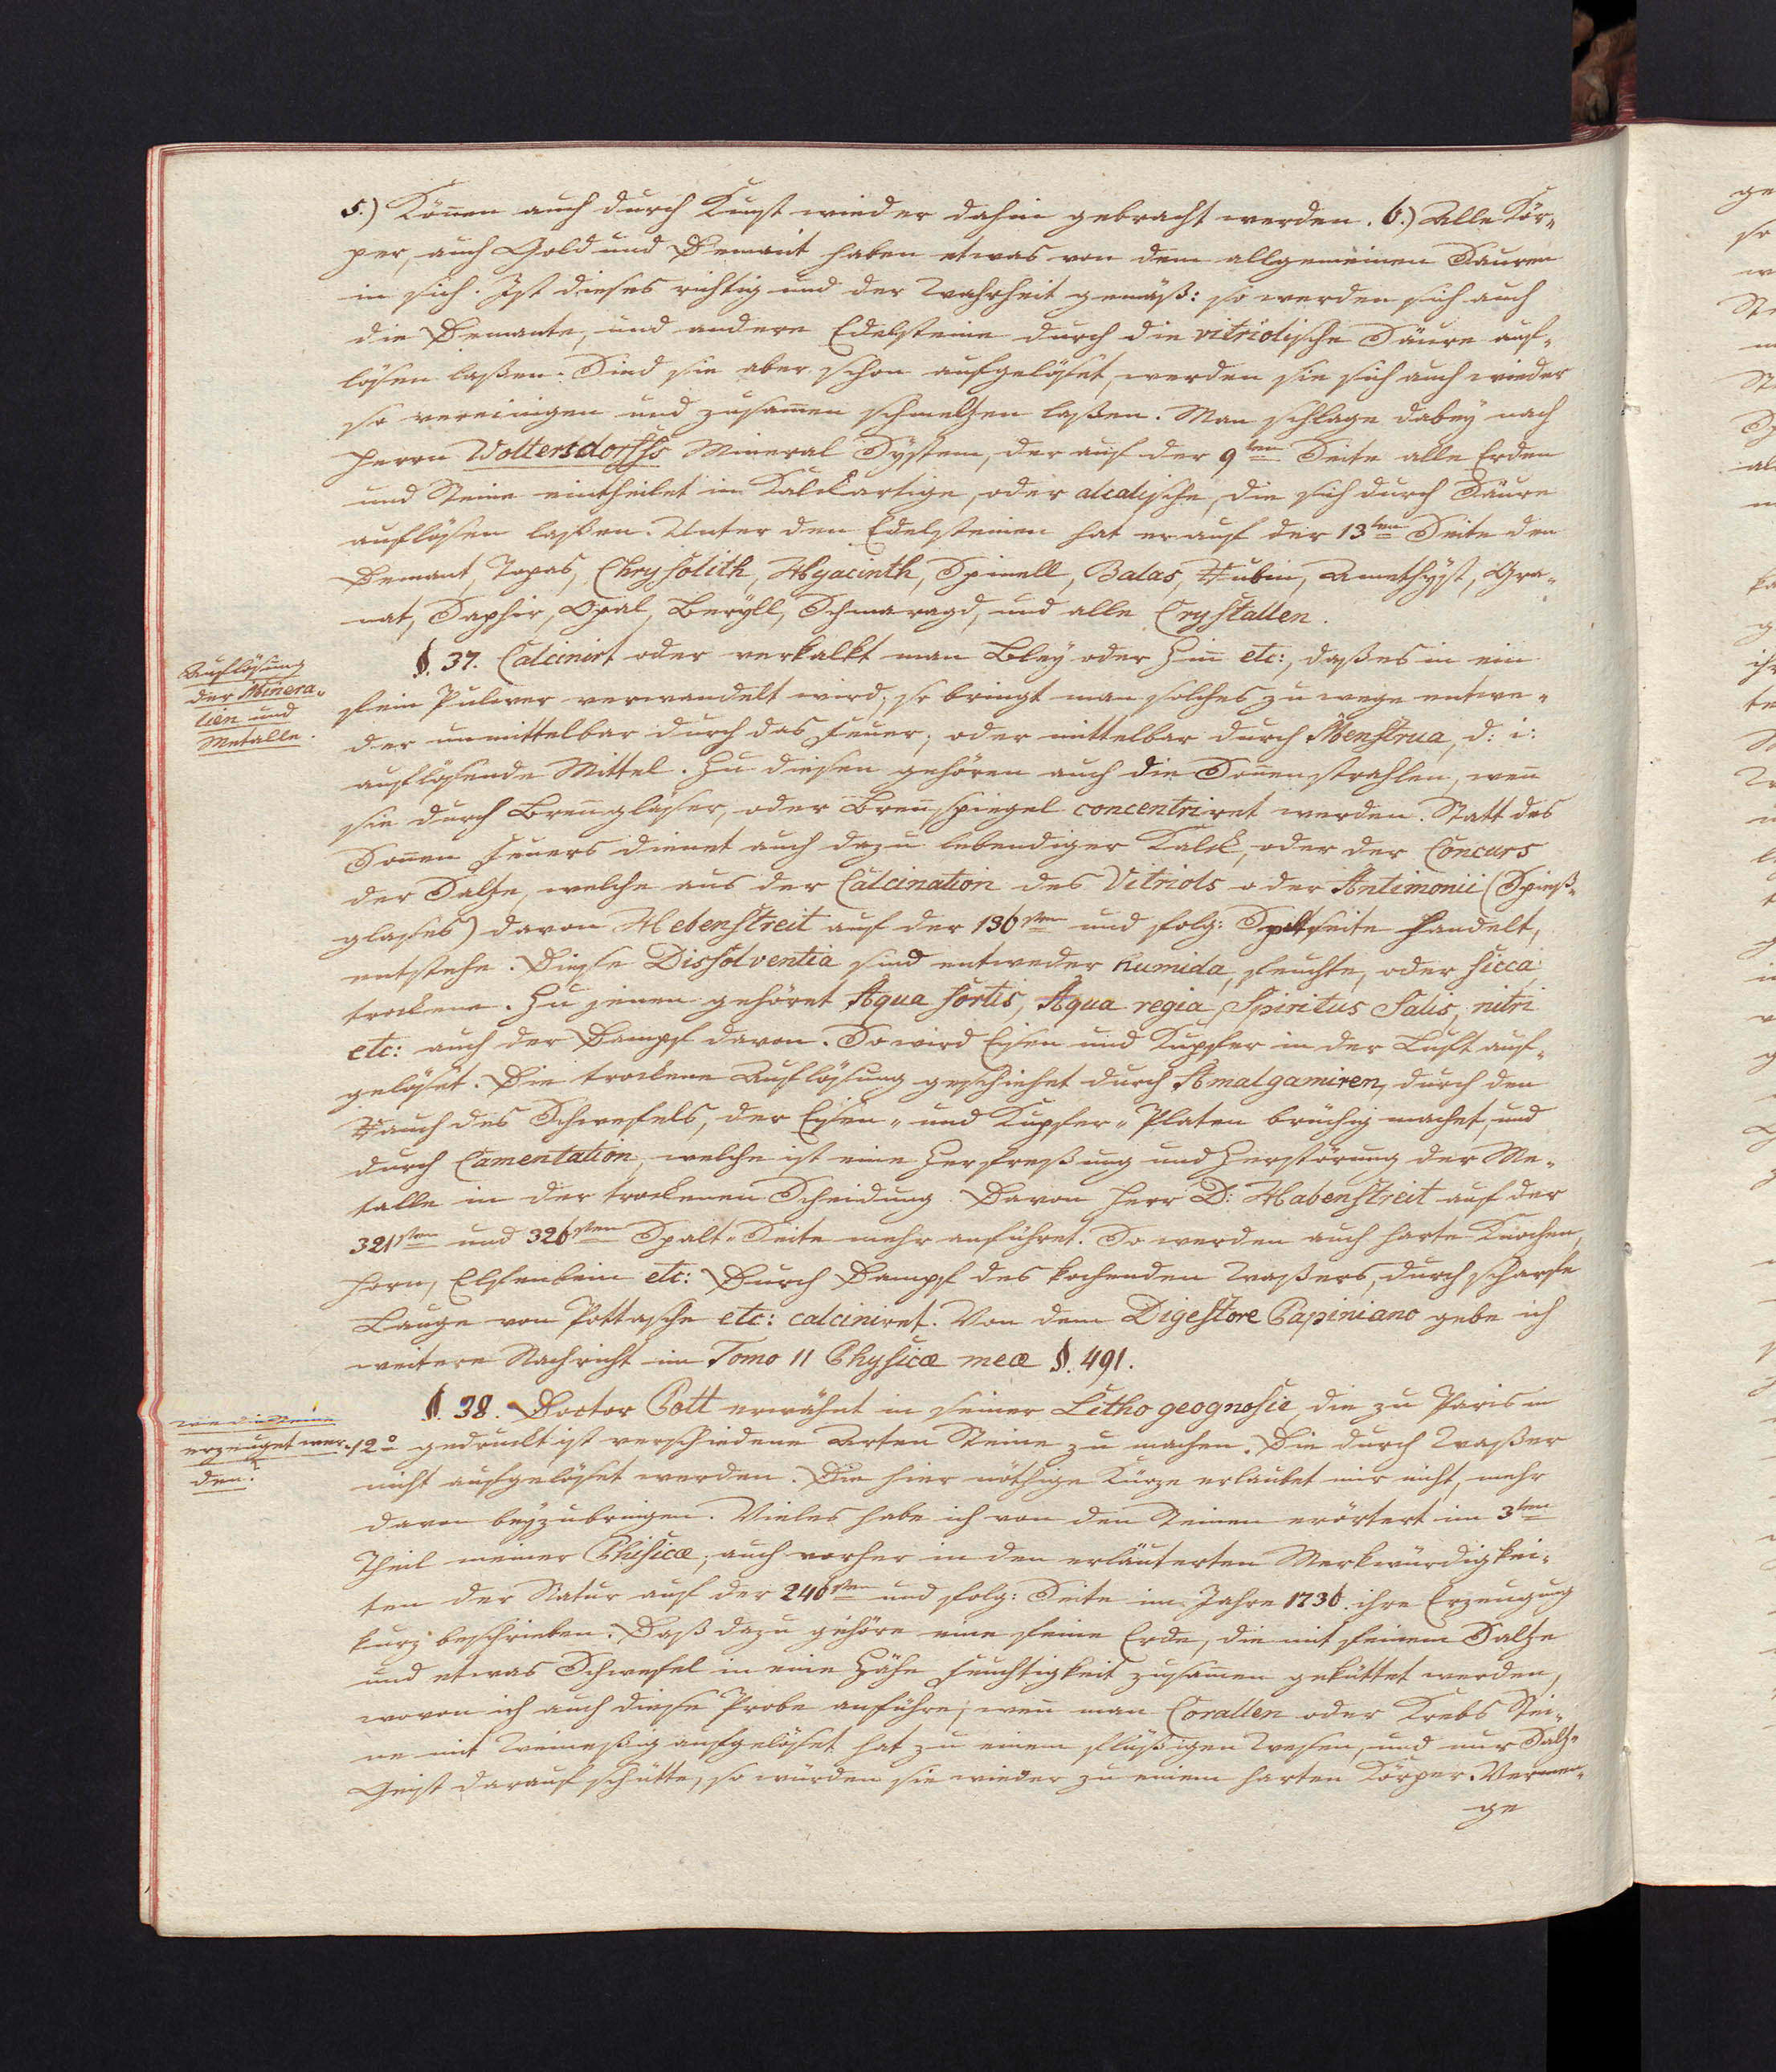 5.) Könen auch durch Kunst wieder dahin gebracht werden. 6.) Alle Kör-
per, auch Gold und Demant haben etwas von dem allgemeinen Sauren
in sich. Ist dieses richtig und der Wahrheit gemäß: so werden sich auch
die Demante, und andere Edelsteine durch die vitriolische Säure auf-
lösen laßen. Sind sie aber schon aufgelöset, werden sie sich auch wieder
so vereinigen und zusamen schmeltzen laßen. Man schlage dabeÿ nach
Herrn Woltersdorffs Mineral Sÿstem, der auf der 9ten Seite alle Erden
und Steine eintheilet in Kalckartige, oder alcalische, die sich durch Säure
auflösen laßen. Unter den Edelsteinen hat er auf der 13ten Seite den
Demant, Topas, Chrysolith, Hyacinth, Spinell, Balas, Rubin, Amethÿst, Gra-
nat, Saphir, Opal, Berÿll, Schmaragd, und alle Crystallen.
Auflösung
der Minera-
lien und
Metalle.
§. 37. Calcinirt oder verkalkt man Bleÿ oder Zin etc:, daß es in ein
fein Pulver verwandelt wird; so bringt man solches zu wege entwe-
der unmittelbar durch das Feuer; oder mittelbar durch Menstrua, d: i:
auflösende Mittel. Zu diesen gehören auch die Sonenstrahlen, wen
sie durch Brengläser, oder Brenspiegel concentriret werden. Statt des
Sonen Feuers dienet auch dazu lebendiger Kalck, oder der Concurs
der Saltze, welche aus der Calcination des Vitriols oder Antimonii (Spieß-
glases) davon Hebenstreit auf der 136sten und folg: Spaltseite handelt,
entstehe. Diese Dissolventia sind entweder humida, feuchte, oder sicca,
trockene. Zu jenen gehöret Aqua fortis, Aqua regia, Spiritus Salis, nitri
etc: auch der Dampf davon. So wird Eisen und Kupfer in der Luft auf-
gelöset. Die trockene Auflösung geschiehet durch Amalgamiren, durch den
Rauch des Schwefels, der Eisen- und Kupfer-Platen brüchig machet, und
durch Camentation, welche ist eine Zerfreßung und Zerstörung der Me-
talle in der trockenen Scheidung. Davon Herr D: Habenstreit auf der
321sten und 326sten Spalt-Seite mehr anführet. So werden auch harte Knochen,
Horn, Elfenbein etc: Durch Dampf des kochenden Waßers, durch scharfe
Lauge von Pottasche etc: calciniret. Von dem Digestore Papiniano gebe ich
weitere Nachricht im Tomo II Physicæ meæ §. 491.
Wie die Steine
erzeuget wer-
den?
§. 38. Doctor Pott erwähnt in seiner Lithogeognosie, die zu Paris in
12o gedruckt ist verschiedene Arten Steine zu machen. Die durch Waßer
nicht aufgelöset werden. Die hier nöthige Kürze erlaubet mir nicht, mehr
davon beÿzubringen. Vieles habe ich von den Steinen erörtert im 3ten
Theil meiner Phisicæ, auch vorher in den erläuterten Merkwürdigkei-
ten der Natur auf der 246sten und folg: Seite im Jahre 1736. ihre Erzeugung
kurz beschrieben. Daß dazu gehöre eine feine Erde, die mit feinem Saltze
und etwas Schwefel in eine zähe Feuchtigkeit zusamen geküttet werden,
wovon ich auch diese Probe anführe; wen man Corallen oder Krebs Stei-
ne mit Weineßig aufgelöset hat zu einem flüßigen Wesen, und nur Saltz-
Geist darauf schütte, so würden sie wieder zu einem harten Körper. Vermen-
ge